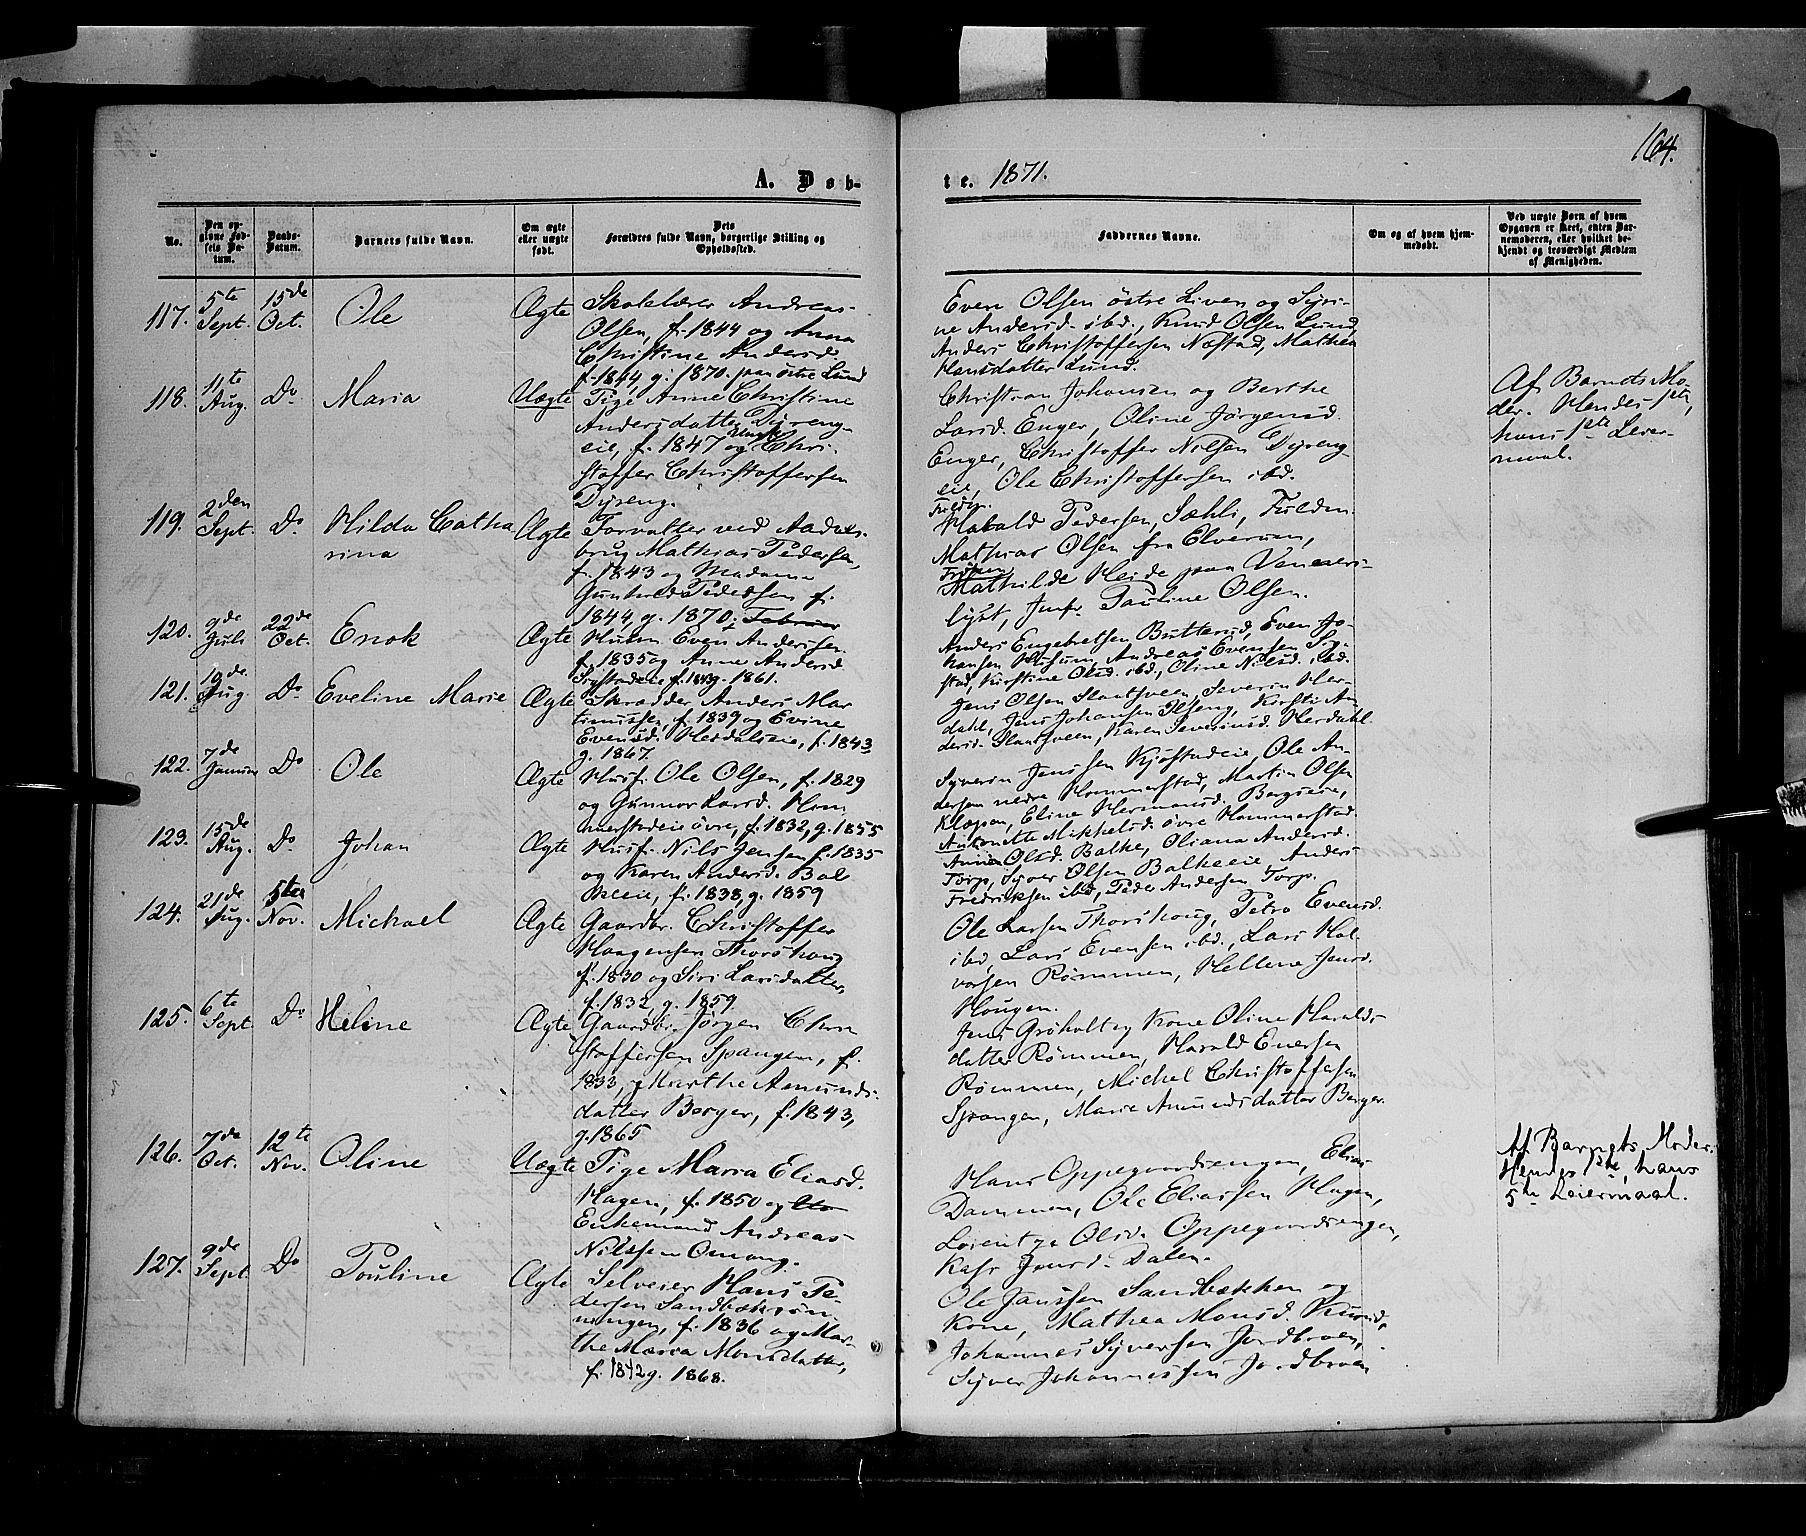 164.
A. Døb-
te. 1871.
No.
Den op-
givne Fød-
sels Da-
tum.
Daabs-
Datum.
Barnets fulde Navn.
Om ægte
eller uægte
født.
Dets
Forældres fulde Navn, borgerlige Stilling og
Opholdssted.
Faddernes Navne.
Om og af hvem hjem-
medøbt.
Ved uægte Børn af hvem
Opgaven er skeet, enten Bar-
nemoderen, eller hvilket be-
kjendt og troværdigt Medlem
af Menigheden.
117. 5te Sept. 15de Oct. Ole Ægte
Skolelærer Andreas
Olsen, f. 1844 og Anna
Christine Andersd.
f. 1844, g. 1870. paa østre Lund
Even Olsen østre Liven og Syri-
ne Andersd. ibd., Knud Olsen Lund,
Anders Christoffersen Næstad, Mathea
Hansdatter Lund.
118. 11te Aug. Do Maria Uægte
Pige Anne Christine
Andersdatter Dyreng-
eie, f. 1847 og Chri-
stoffer Christoffersen
Dyreng.
Christian Johansen og Berthe
Larsd. Enger, Oline Jørgensd.
Enger, Christoffer Nilsen Dyreng
eie, Ole Christoffersen ibd.
Af Barnets Mo-
der. Hendes 1ste,
hans 1ste Leier-
maal.
119. 2den Sept. Do Hilda Catha
rina Ægte
Forvalter ved Aadals-
brug Mathias Pedersen,
f. 1843 og Madame
Gunhild Pedersen f.
1844, g. 1870, Februar
Harald Pedersen, Sæhli, Fuldm.
Mathias Olsen fra Elverum,
Frøken
Mathilde Heide paa Venners-
lyst, Jmfr. Pauline Olsen.
120. 9de Juli 22de Oct. Enok Ægte
Husm. Even Andersen
f. 1835 og Anne Andersd
f. 1843 g. 1861.
Anders Engebretsen Butterud, Even Jo-
hansen Husum, Andreas Evensen Sy-
stad, Kirstine Olsd. ibd., Oline Nilsd. ibd.
121. 19de Aug. Do Eveline Marie Ægte
Skrædder Anders Mar
tinussen, f. 1839 og Evine
Evensd. Herdalseie, f. 1843
g. 1867.
Jens Olsen Slaatsveen, Severin Her-
dahl, Jens Johansen Ilseng, Kirsti An
dersd. Slaatsveen, Karen Severinsd. Herdahl.
122. 7de Januar Do Ole Ægte
Husf. Ole Olsen, f. 1829
og Gunnor Larsd. Hom
merstadeie øvre, f. 1832, g. 1855
Syverin Jenssen Kjøstadeie, Ole An-
dersen nedre Hommerstad, Martin Olsen
Klæpen, Eline Hermansd. Bergseie,
Antonette Mikkelsd. øvre Hommerstad.
123. 15de Aug. Do Johan Ægte
Husf. Nils Jensen f. 1835
og Karen Andersd. Bal
keeie, f. 1838, g. 1859
Anne Olsd. Balke, Oliana Andersd.
Torp, Syver Olsen Balkeeie, Anders
Fredriksen ibd, Peder Andersen Torp.
124. 21de Aug. 5te Nov. Michael Ægte
Gaardbr. Christoffer
Haagensen Thorshoug
f. 1830 og Siri Larsdatter,
f. 1832, g. 1859
Ole Larsen Thorshoug, Petra Evensd.
ibd, Lars Evensen ibd., Lars Hal-
vorsen Rømmen, Hellene Jensd.
Hougen.
125. 6te Sept. Do Heline Ægte
Gaardbr. Jørgen Chri
stoffersen Spangen, f.
1833, og Marthe Amunds-
datter Berger, f. 1843,
g. 1865
Jens Grøholt og Kone Oline Haralds
datter Rømmen, Harald Enersen
Rømmen, Michel Christoffersen
Spangen, Marie Amundsdatter Berger.
126. 7de Oct. 12te Nov. Oline Uægte
Pige Maria Eliasd.
Hagen, f. 1850 og
Enkemand Andreas
Nilssen Omang.
Hans Oppegaardsengen, Elias
Dammen, Ole Eliassen Hagen,
Lorentze Olsd. Oppegaardsengen,
Kasp Jensd. Dalen.
Af Barnets Moder.
Hendes 1ste, hans
5te Leiermaal.
127. 9de Sept. Do Pouline Ægte
Selveier Hans Pe-
dersen Sandbæksøn-
ningen, f. 1836 og Mar-
the Maria Monsdatter,
f. 1842 g. 1868.
Ole Janssen Sandbækken og
Kone, Mathea Monsd. Kurud,
Johannes Syversen Jordbroen,
Syver Johannessen Jordbroen